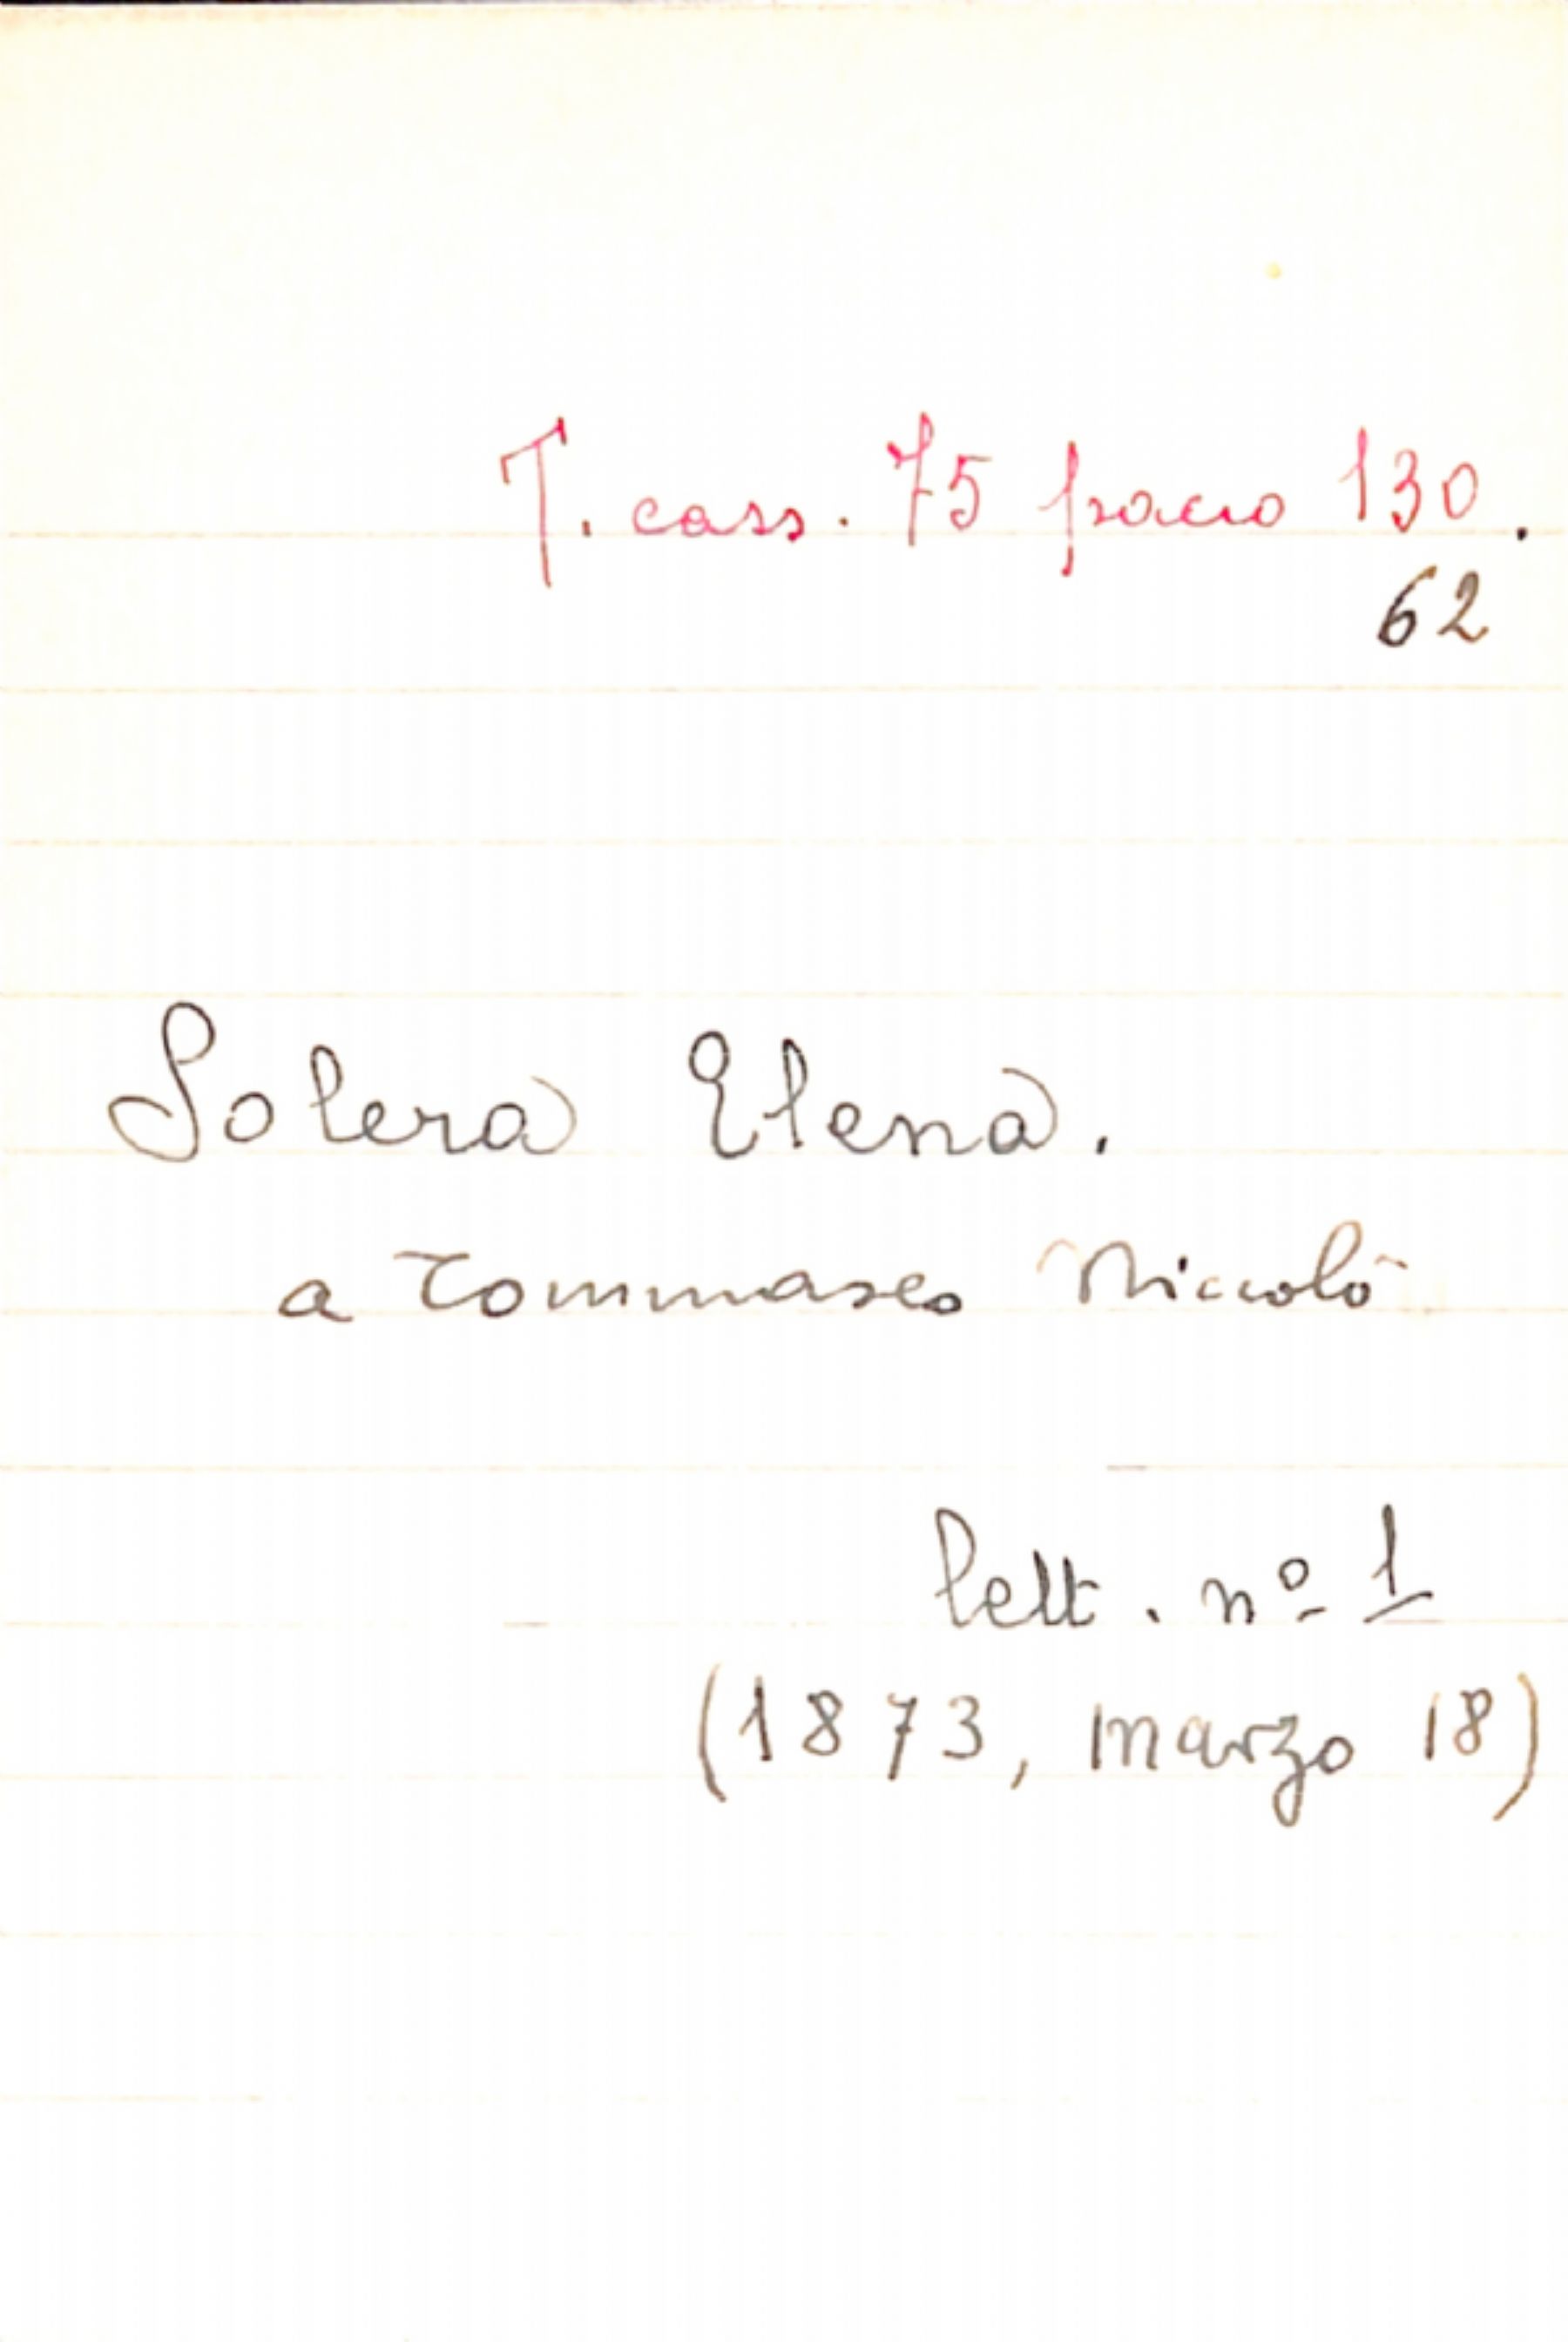 T. cass. 75 pacco 130.
62
Solera Elena.
a Tommaseo Niccolò
lett. nº 1
(1873, marzo 18)